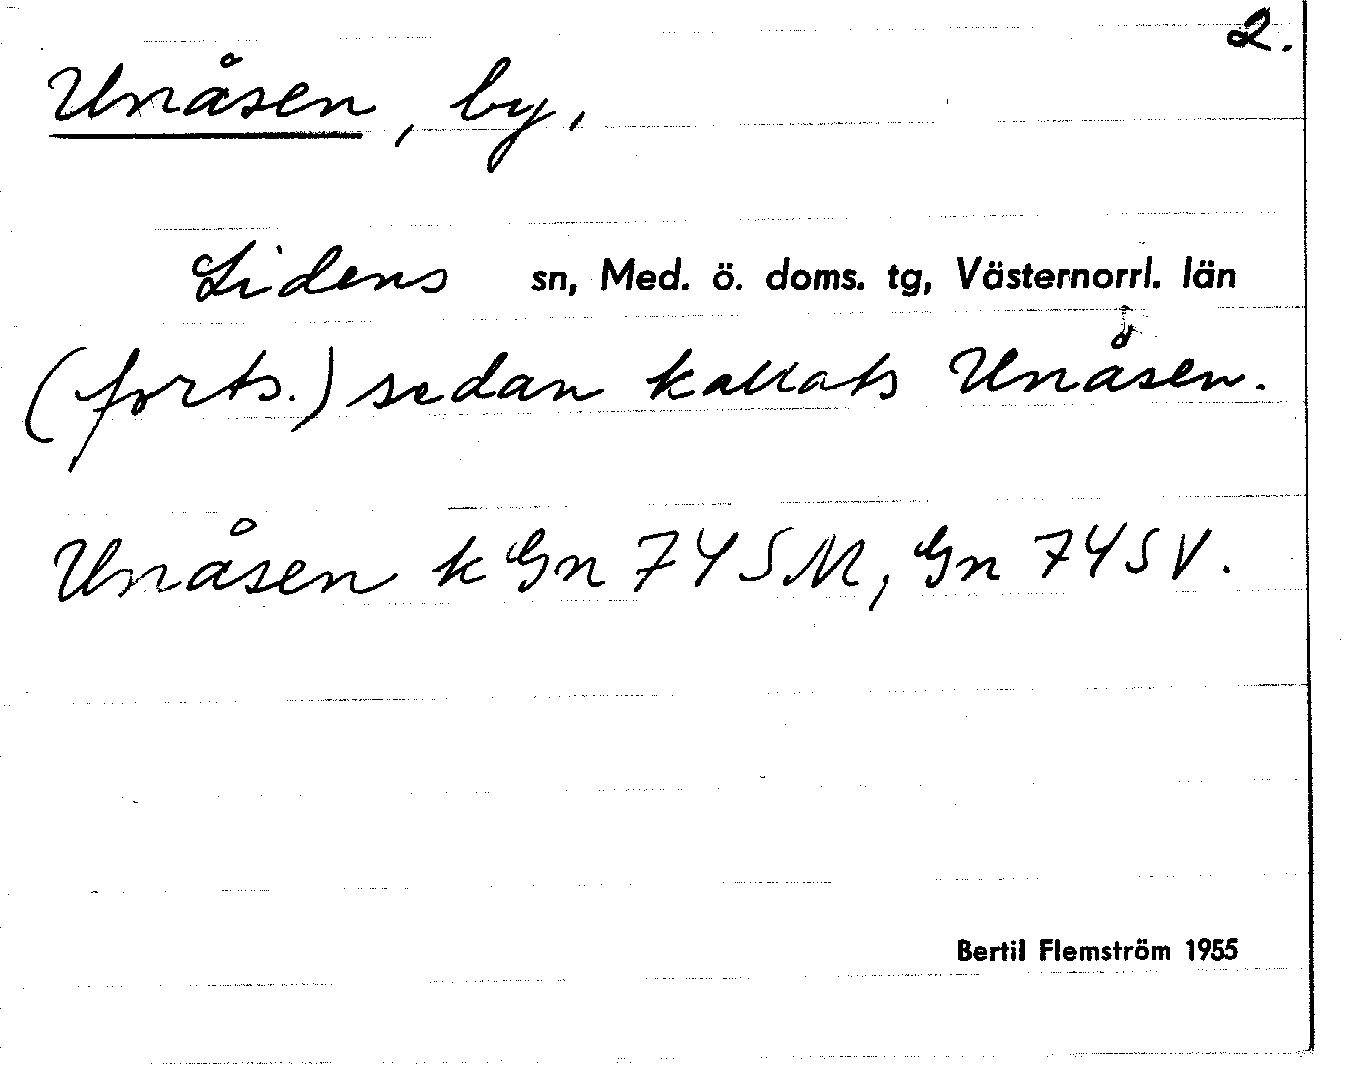 2.
Unåsen, by,
Lidens sn, Med. ö. doms. tg, Västernorrl. län
(forts.) sedan kallats Unåsen.
Unåsen k Gn 74SM, Gn 74SV.
Bertil Flemström 1955